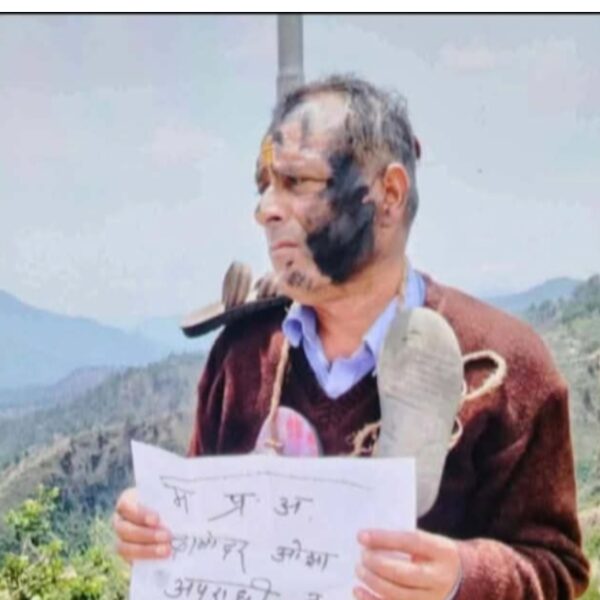 मै प्र. अ.
दामोदर ओझा
अपराधी